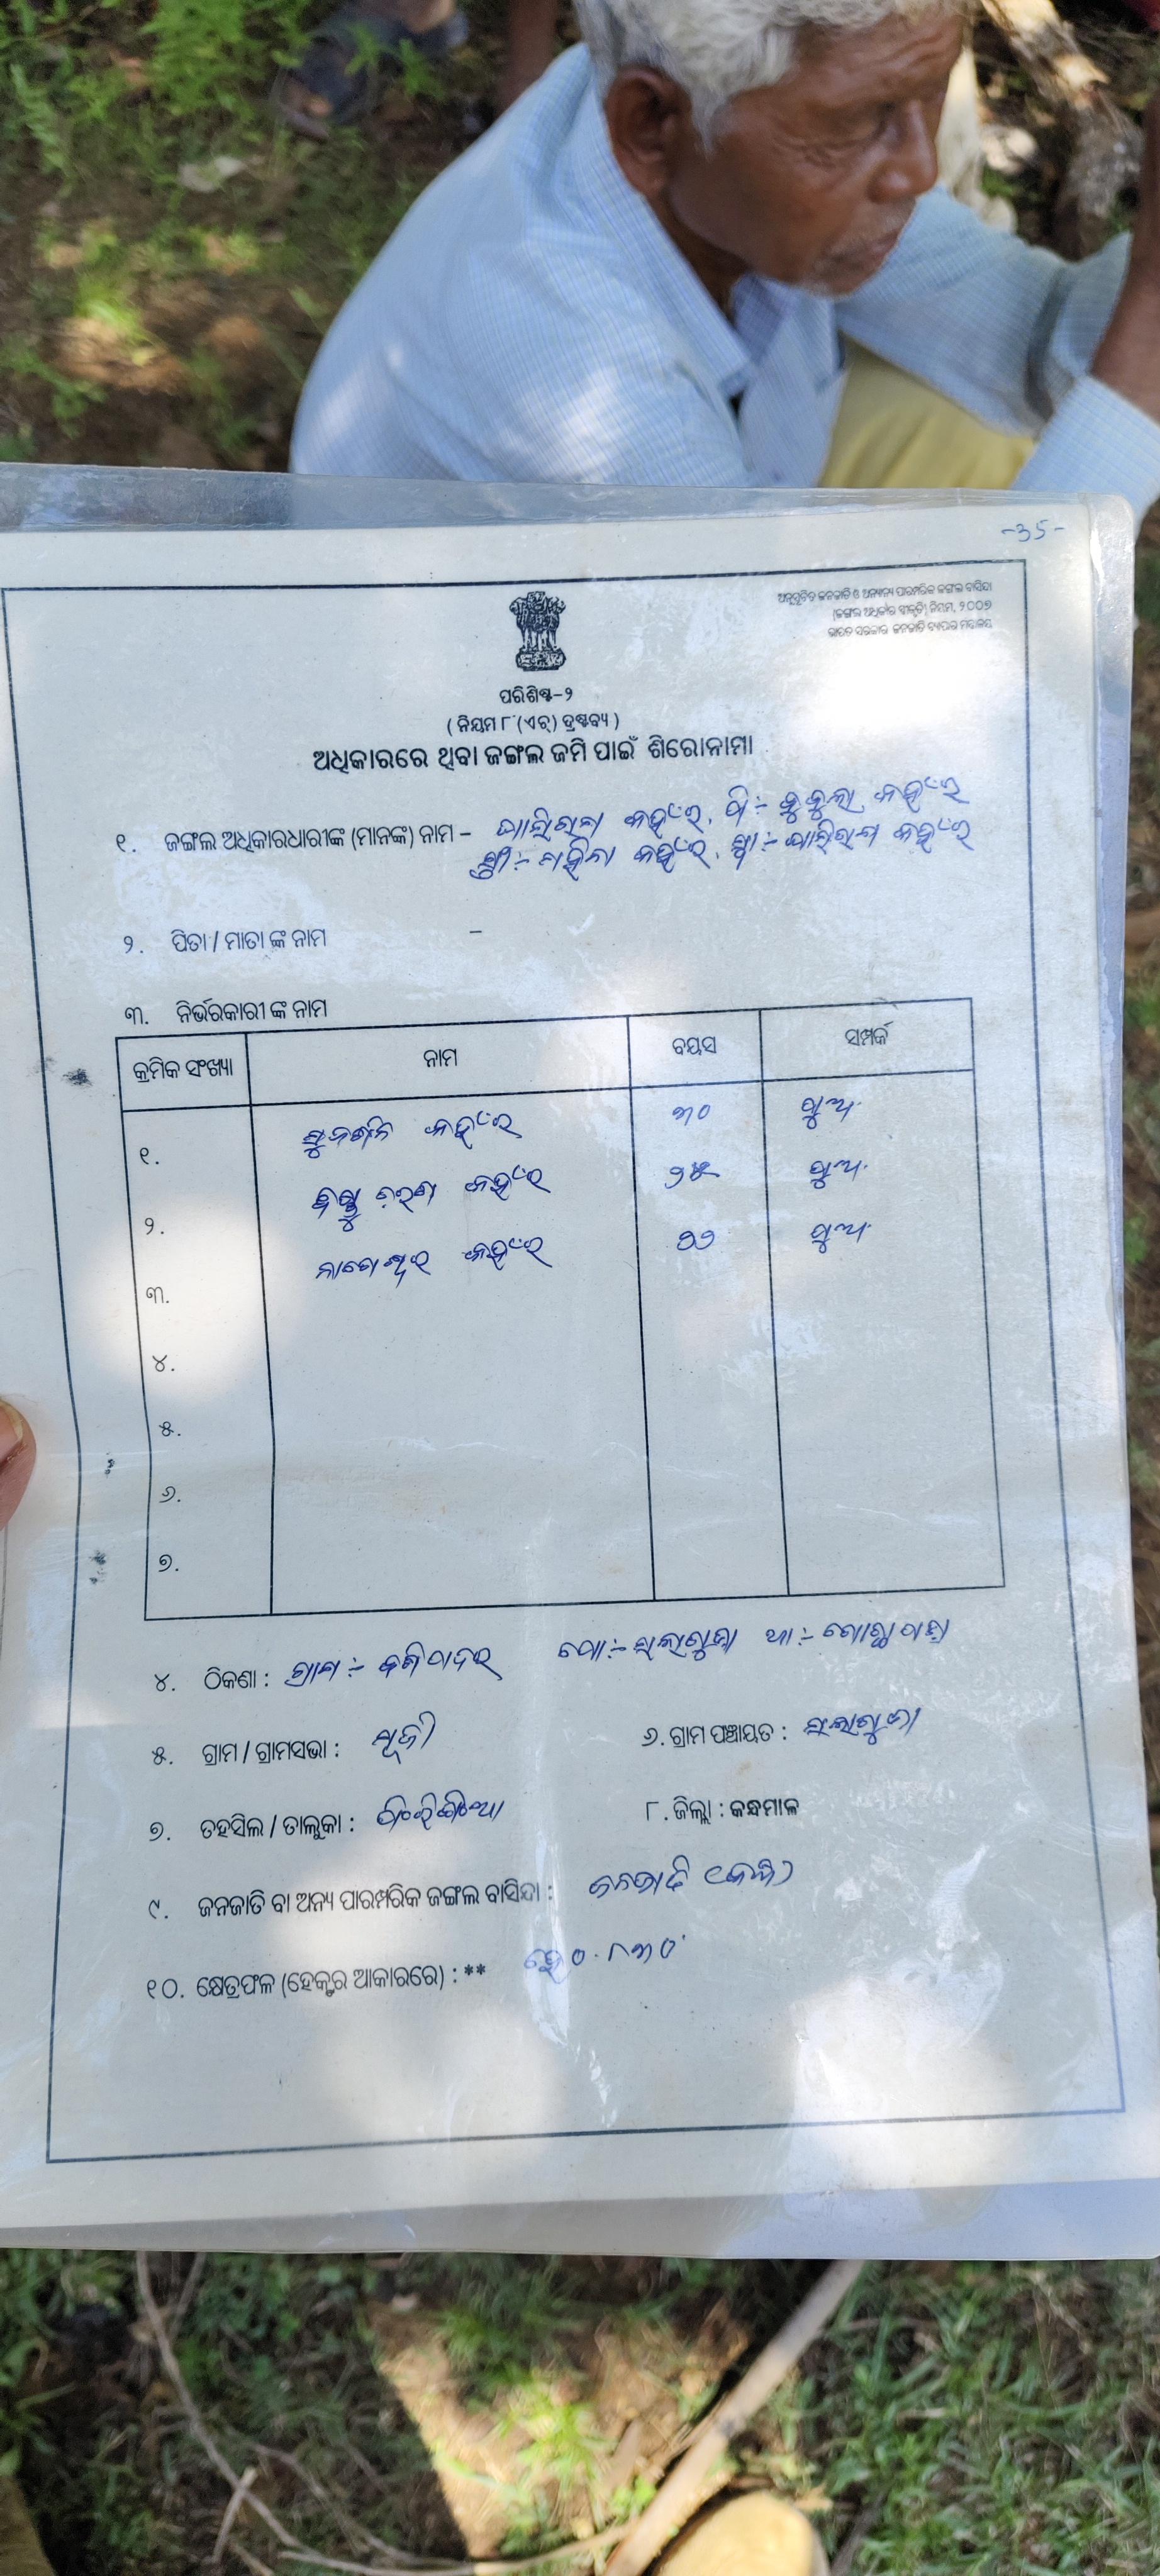 -35-
ଅନୁସୂଚିତ ଜନଜାତି ଓ ଅନ୍ୟାନ୍ୟ ପାରମ୍ପରିକ ଜଙ୍ଗଲ ବାସିନ୍ଦା
(ଜଙ୍ଗଲ ଅଧିକାର ସ୍ୱୀକୃତି) ନିୟମ, ୨୦୦୭
ଭାରତ ସରକାର ଜନଜାତି ବ୍ୟାପାର ମନ୍ତ୍ରାଳୟ
ପରିଶିଷ୍ଟ-୨
( ନିୟମ ୮ (ଏଚ୍) ଦ୍ରଷ୍ଟବ୍ୟ )
ଅଧିକାରରେ ଥିବା ଜଙ୍ଗଲ ଜମି ପାଇଁ ଶିରୋନାମା
୧. ଜଙ୍ଗଲ ଅଧିକାରଧାରୀଙ୍କ (ମାନଙ୍କ) ନାମ - କହଁର, ପି:- କହଁର
ସ୍ତ୍ରୀ:- କହଁର, ସ୍ୱା:- କହଁର
୨. ପିତା / ମାତା ଙ୍କ ନାମ -
୩. ନିର୍ଭରକାରୀ ଙ୍କ ନାମ
କ୍ରମିକ ସଂଖ୍ୟା ନାମ ବୟସ ସମ୍ପର୍କ
୧. କହଁର ୩୦ ପୁଅ
୨. ବିଷ୍ଣୁ ଚରଣ କହଁର ୨୫ ପୁଅ
୩. ନାଗେଶ୍ୱର କହଁର ୨୨ ପୁଅ
୪.
୫.
୬.
୭.
୪. ଠିକଣା : ଗ୍ରାମ :- ପୋ:- ସଲାଗୁଡା ଥା:-
୫. ଗ୍ରାମ / ଗ୍ରାମସଭା : ୬. ଗ୍ରାମ ପଞ୍ଚାୟତ : ସଲାଗୁଡା
୭. ତହସିଲ / ତାଲୁକା : ୮. ଜିଲ୍ଲା : କନ୍ଧମାଳ
୯. ଜନଜାତି ବା ଅନ୍ୟ ପାରମ୍ପରିକ ଜଙ୍ଗଲ ବାସିନ୍ଦା : ଜନଜାତି (କନ୍ଧ)
୧୦. କ୍ଷେତ୍ରଫଳ (ହେକ୍ଟର ଆକାରରେ) : ** ହେ ୦.୮୩୦